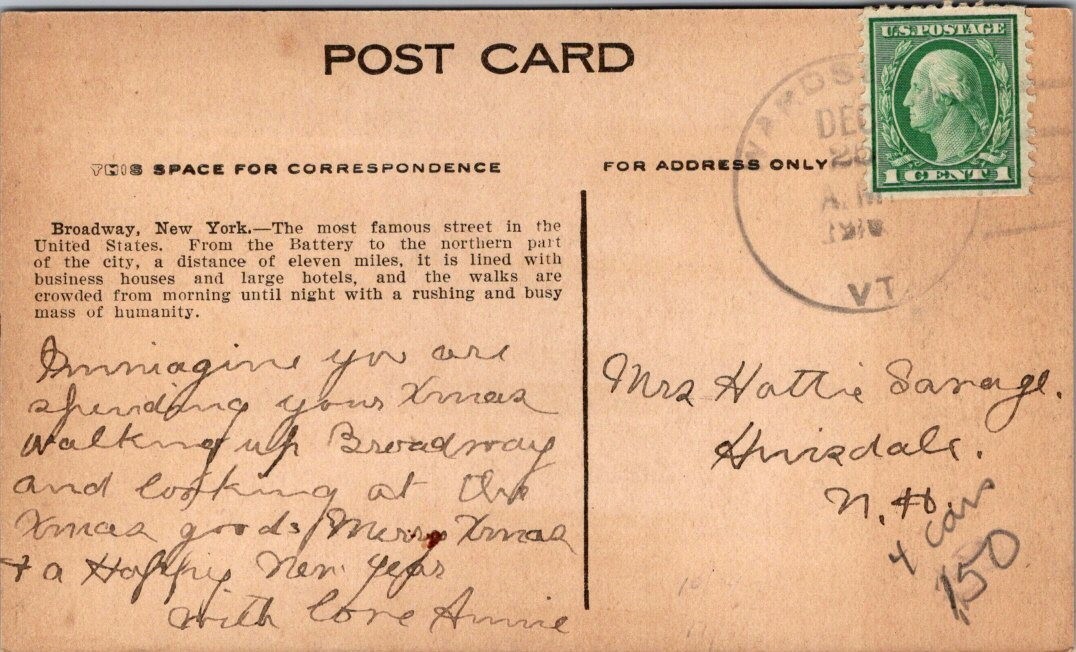 POST CARD
U.S. POSTAGE
1 CENT 1
WARDS
DEC
25
A.M.
VT
THIS SPACE FOR CORRESPONDENCE
FOR ADDRESS ONLY
Broadway, New York.—The most famous street in the
United States. From the Battery to the northern part
of the city, a distance of eleven miles, it is lined with
business houses and large hotels, and the walks are
crowded from morning until night with a rushing and busy
mass of humanity.
Immagine you are
spending your Xmas
walking up Broadway
and looking at the
Xmas goods Merry Xmas
+ a Happy New Year
with love Annie
Mrs Hattie Savage.
Hinsdale.
N.H.
4 cars
150